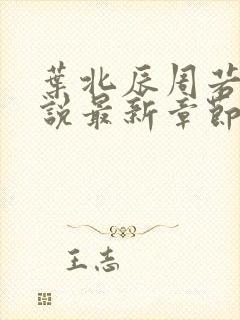 葉北辰周若
說最新章節
王志